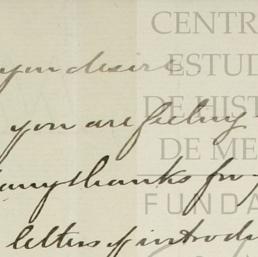 CENTR
you desire
ESTUD
you are feeling
DE HIST
DE ME
any thanks for
FUNDA
letters of introdu